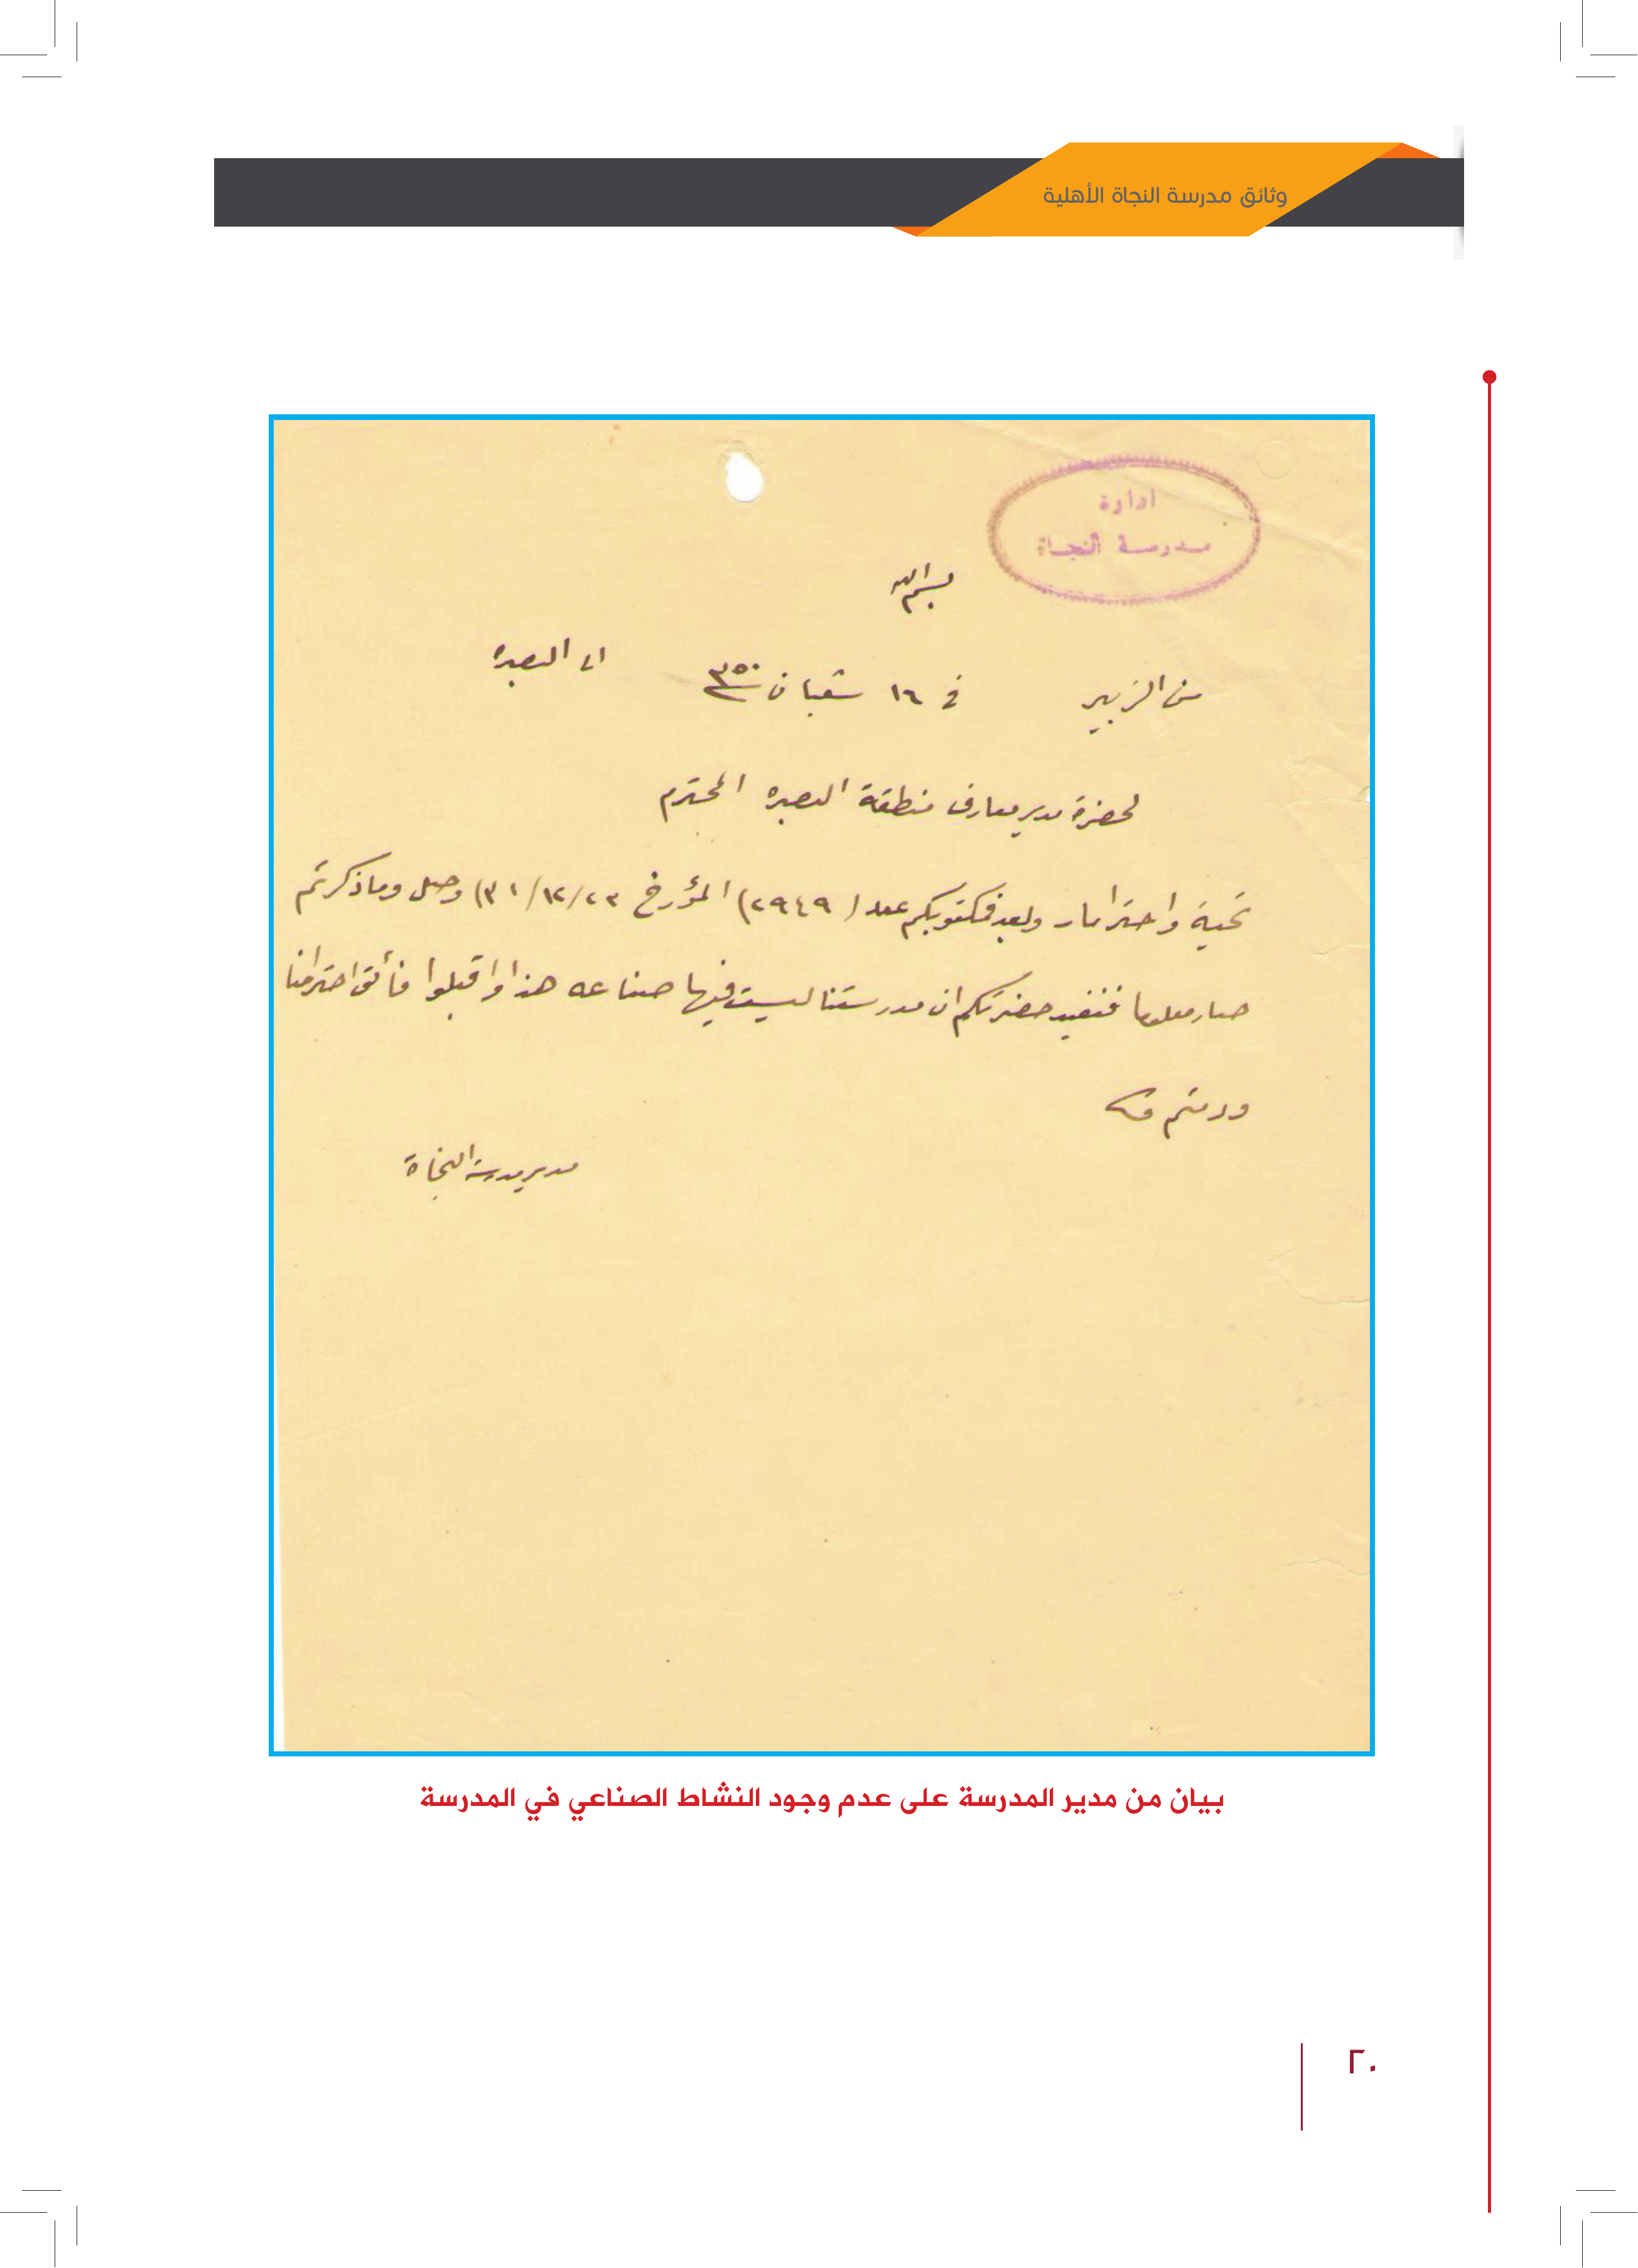 وثائق مدرسة النجاة الأهلية
ادارة
مدرسة النجاة
بسم الله
من الزبير في ١٦ شعبان ٣٥٠ الى البصره
لحضرة مدير معارف منطقة البصره المحترم
تحية واحتراما وبعد فمكتوبكم عدد (٢٩٤٩) المؤرخ ٢٣/١٢/٣١) وصل وما ذكرتم
صار معلوما فنفيد حضرتكم ان مدرستنا ليست فيها صناعه هذا واقبلوا فائق احترامنا
ودمتم
مدير مدرسة النجاة
بيان من مدير المدرسة على عدم وجود النشاط الصناعي في المدرسة
٢٠